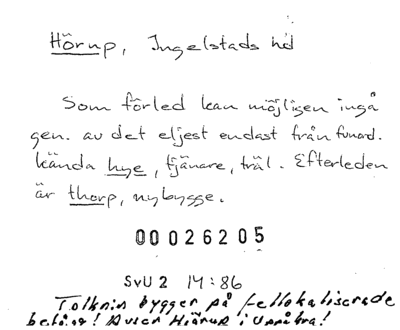 Hörup, Ingelstads hd
Som förled kan möjligen ingå
gen. av det eljest endast från funord.
kända hye, tjänare, träl. Efterleden
är thorp, nybygge.
00026205
SvU 2 14:86
Tolknin bygger på fellokaliserade
belägg! Avser Hjärup i Uppåkra!